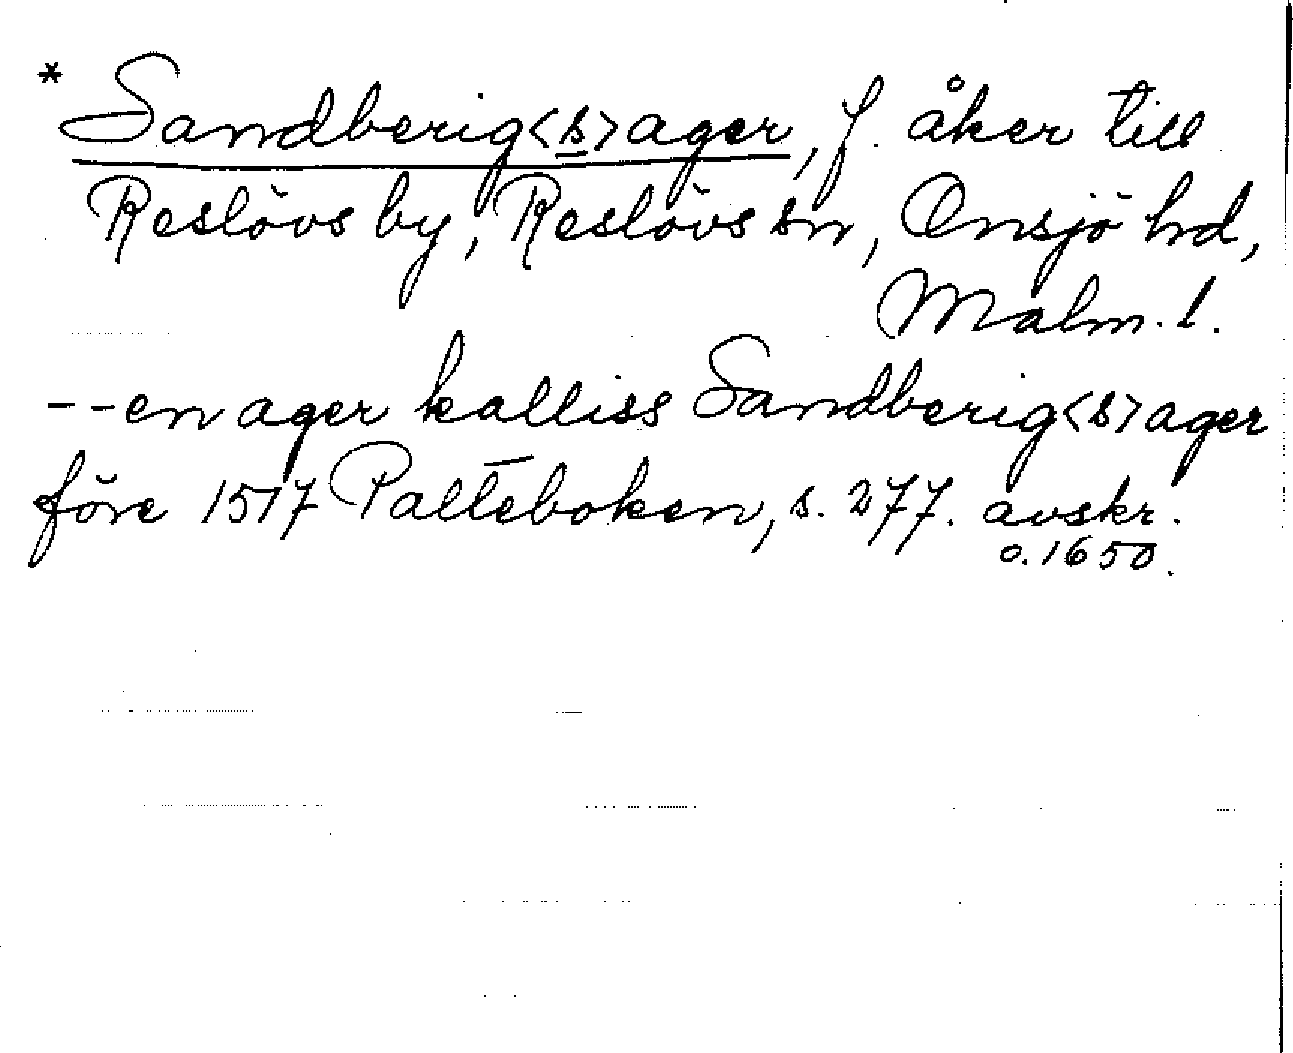 * Sandberig<s>ager, f. åker till
Reslövs by, Reslövs sn, Onsjö hd,
Malm. l.
--en ager kalliss Sandberig<s>ager
före 1517 Palteboken, s. 277. avskr.
o. 1650.